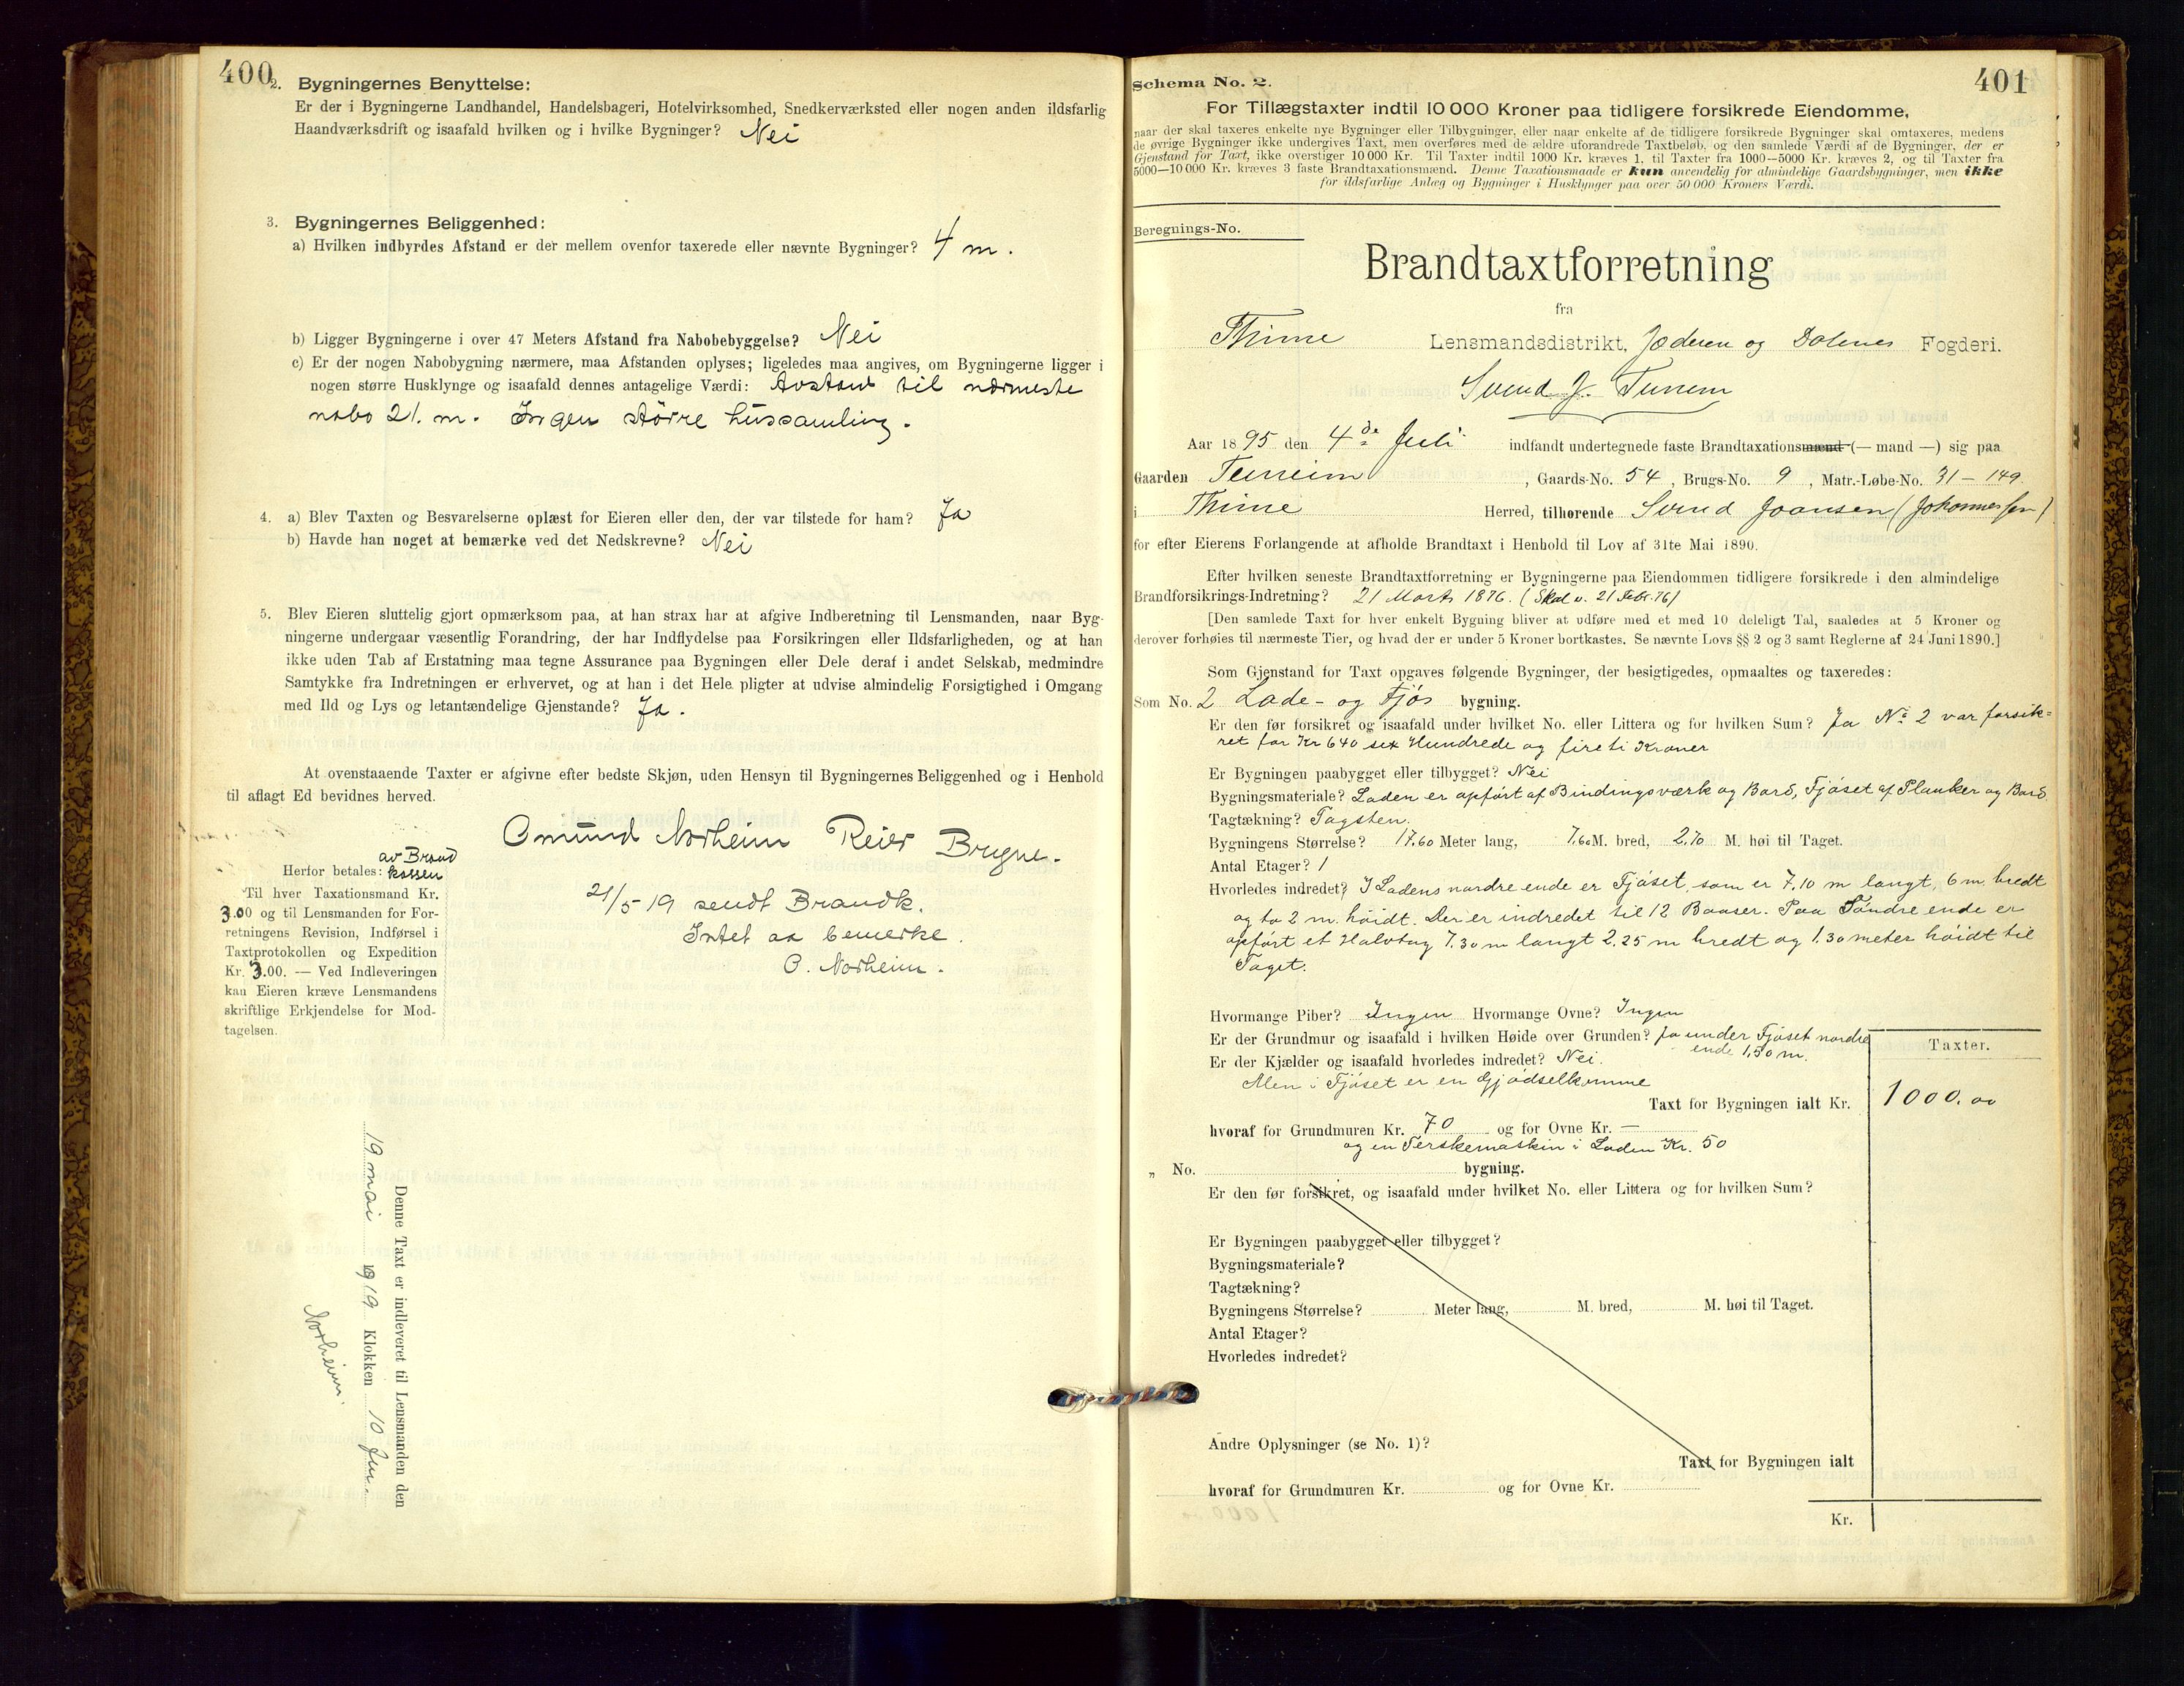 400
2. Bygningernes Benyttelse:
Er der i Bygningerne Landhandel, Handelsbageri, Hotelvirksomhed, Snedkerværksted eller nogen anden ildsfarlig
Haandværksdrift og isaafald hvilken og i hvilke Bygninger? Nei
3. Bygningernes Beliggenhed:
a) Hvilken indbyrdes Afstand er der mellem ovenfor taxerede eller nævnte Bygninger? 4 m.
b) Ligger Bygningerne i over 47 Meters Afstand fra Nabobebyggelse? Nei
c) Er der nogen Nabobygning nærmere, maa Afstanden oplyses; ligeledes maa angives, om Bygningerne ligger i
nogen større Husklynge og isaafald dennes antagelige Værdi: Avstand til nærmeste
nabo 21. m. Ingen större hussamling.
4. a) Blev Taxten og Besvarelserne oplæst for Eieren eller den, der var tilstede for ham? Ja
b) Havde han noget at bemærke ved det Nedskrevne? Nei
5. Blev Eieren sluttelig gjort opmærksom paa, at han strax har at afgive Indberetning til Lensmanden, naar Byg-
ningerne undergaar væsentlig Forandring, der har Indflydelse paa Forsikringen eller Ildsfarligheden, og at han
ikke uden Tab af Erstatning maa tegne Assurance paa Bygningen eller Dele deraf i andet Selskab, medmindre
Samtykke fra Indretningen er erhvervet, og at han i det Hele pligter at udvise almindelig Forsigtighed i Omgang
med Ild og Lys og letantændelige Gjenstande? Ja.
At ovenstaaende Taxter er afgivne efter bedste Skjøn, uden Hensyn til Bygningernes Beliggenhed og i Henhold
til aflagt Ed bevidnes herved.
Omund Norheim Reier Brugne.
av Brand
Herfor betales: kassen
Til hver Taxationsmand Kr.
3.00 og til Lensmanden for For-
retningens Revision, Indførsel i
Taxtprotokollen og Expedition
Kr. 3.00. — Ved Indleveringen
kan Eieren kræve Lensmandens
skriftlige Erkjendelse for Mod-
tagelsen.
21/5-19 sendt Brandk.
Intet aa bemerke.
O. Norheim.
Denne Taxt er indleveret til Lensmanden den
19 mai 1919 Klokken 10 fm
Norheim.
401
Schema No. 2.
For Tillægstaxter indtil 10 000 Kroner paa tidligere forsikrede Eiendomme,
naar der skal taxeres enkelte nye Bygninger eller Tilbygninger, eller naar enkelte af de tidligere forsikrede Bygninger skal omtaxeres, medens
de øvrige Bygninger ikke undergives Taxt, men overføres med de ældre uforandrede Taxtbeløb, og den samlede Værdi af de Bygninger, der er
Gjenstand for Taxt, ikke overstiger 10 000 Kr. Til Taxter indtil 1000 Kr. kræves 1, til Taxter fra 1000—5000 Kr. kræves 2, og til Taxter fra
5000—10 000 Kr. kræves 3 faste Brandtaxationsmænd. Denne Taxationsmaade er kun anvendelig for almindelige Gaardsbygninger, men ikke
for ildsfarlige Anlæg og Bygninger i Husklynger paa over 50 000 Kroners Værdi.
Beregnings-No.
Brandtaxtforretning
fra
Thime Lensmandsdistrikt, Jæderen og Dalenes Fogderi.
Svend J. Tunem
Aar 1895 den 4de Juli indfandt undertegnede faste Brandtaxationsmænd (— mand —) sig paa
Gaarden , Gaards-No. 54, Brugs-No. 9, Matr.-Løbe-No. 31 – 149
i Thime Herred, tilhørende Svend Joansen (Johannessen)
for efter Eierens Forlangende at afholde Brandtaxt i Henhold til Lov af 31te Mai 1890.
Efter hvilken seneste Brandtaxtforretning er Bygningerne paa Eiendommen tidligere forsikrede i den almindelige
Brandforsikrings-Indretning? 21 Marts 1876. (Skal v. 21 Febr. 76)
[Den samlede Taxt for hver enkelt Bygning bliver at udføre med et med 10 deleligt Tal, saaledes at 5 Kroner og
derover forhøies til nærmeste Tier, og hvad der er under 5 Kroner bortkastes. Se nævnte Lovs §§ 2 og 3 samt Reglerne af 24 Juni 1890.]
Som Gjenstand for Taxt opgaves følgende Bygninger, der besigtigedes, opmaaltes og taxeredes:
Som No. 2 Lade- og Fjøs bygning.
Er den før forsikret og isaafald under hvilket No. eller Littera og for hvilken Sum? Ja No 2 var forsik=
ret for Kr 640 sex Hundrede og fireti Kroner
Er Bygningen paabygget eller tilbygget? Nei
Bygningsmateriale? Laden er opført af Bindingsværk og Bord, Fjøset af Planker og Bord
Tagtækning? Tagsten.
Bygningens Størrelse? 17.60 Meter lang, 7.60 M. bred, 2.70 M. høi til Taget.
Antal Etager? 1
Hvorledes indredet? I Ladens nordre ende er Fjøset, som er 7,10 m langt, 6 m. bredt
og to 2 m. høidt. Der er indredet til 12 Baaser. Paa Søndre ende er
opført et Halvtag 7.30 m langt 2.25 m bredt og 1.30 meter høidt til
Taget.
Hvormange Piber? Ingen Hvormange Ovne? Ingen
Er der Grundmur og isaafald i hvilken Høide over Grunden? Ja under Fjøset nordre
ende 1,50 m.
Er der Kjælder og isaafald hvorledes indredet? Nei.
Men i Fjøset er en Gjødselkumme
Taxter.
Taxt for Bygningen ialt Kr. 1000.00
hvoraf for Grundmuren Kr. 70 og for Ovne Kr. —
og en Terskemaskin i Laden Kr. 50
„ No. bygning.
Er den før forsikret, og isaafald under hvilket No. eller Littera og for hvilken Sum?
Er Bygningen paabygget eller tilbygget?
Bygningsmateriale?
Tagtækning?
Bygningens Størrelse? Meter lang, M. bred, M. høi til Taget.
Antal Etager?
Hvorledes indredet?
Andre Oplysninger (se No. 1)?
Taxt for Bygningen ialt
hvoraf for Grundmuren Kr. og for Ovne Kr.
Kr.